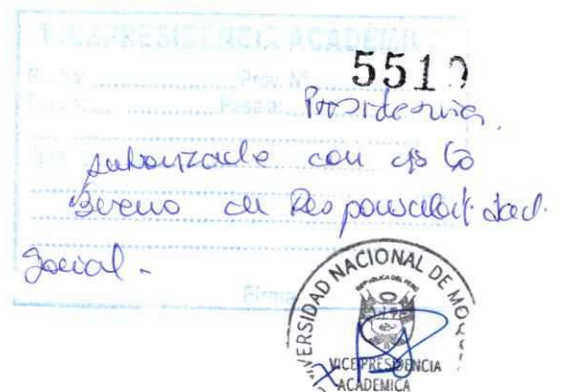 VICEPRESIDENCIA ACADÉMIC
Reg. Nº Prov. Nº 551
Pase a:
Presidencia.
autorizado con
Bueno de Responsabilidad
Social.-
Firma
UNIVERSIDAD NACIONAL DE MO
REPUBLICA DEL PERU
VICEPRESIDENCIA
ACADÉMICA